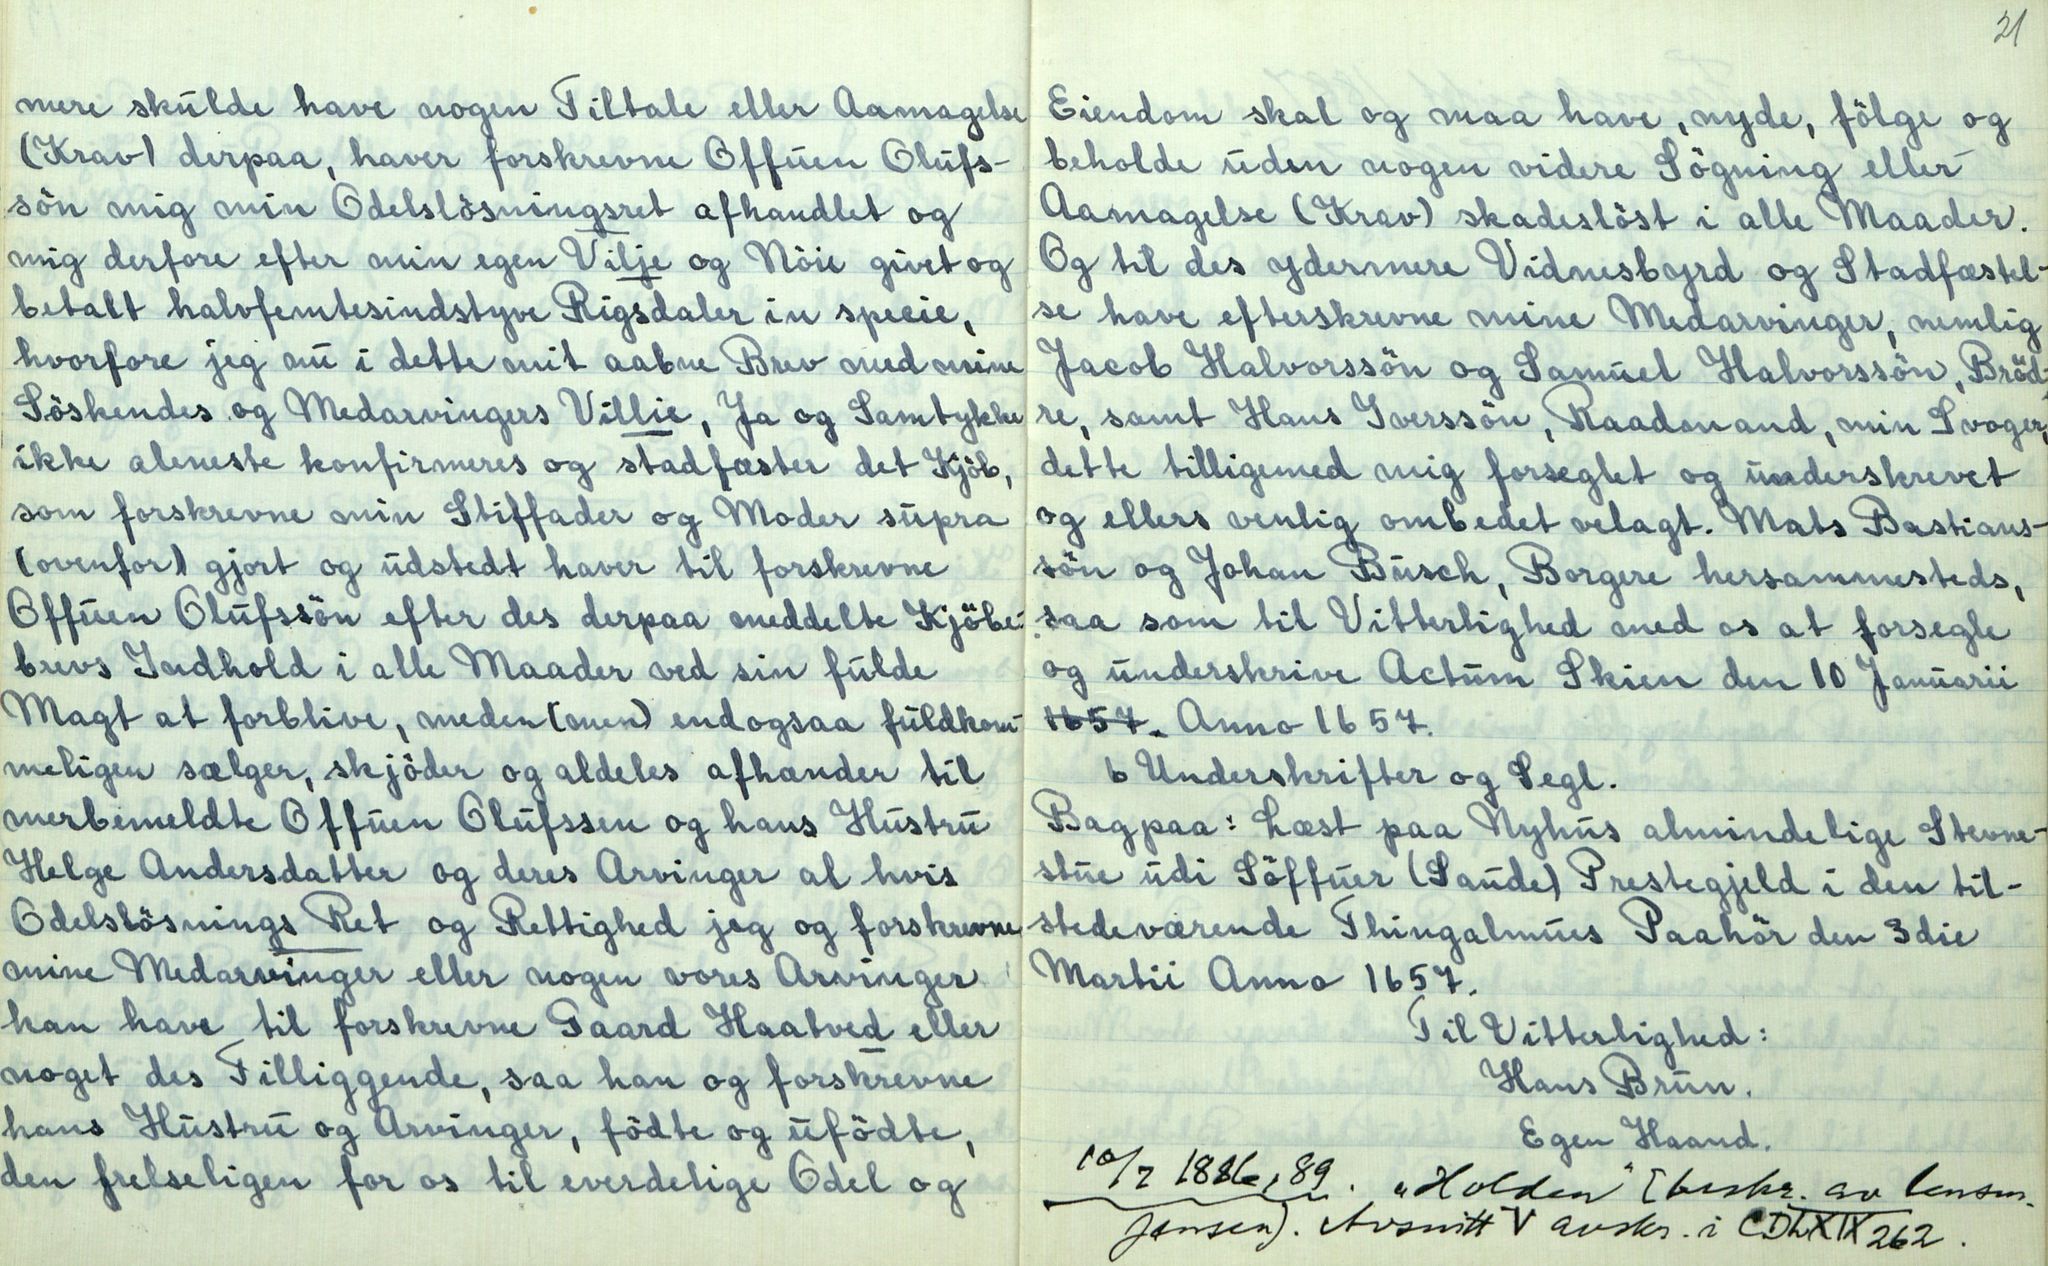 mere skulde have nogen Tiltale eller Aamagelse
(Krav) derpaa, haver forskrevne Offuen Olufs-
sön mig min Odelslösningsret afhandlet og
mig derfore efter min egen Vilje og Nöie givet og
betalt halvfemtesindstyve Rigsdaler in specie,
hvorfore jeg nu i dette mit aabne Brev med mine
Söskendes og Medarvingers Villie, Ja og Samtykke
ikke aleneste konfirmeres og stadfæster det Kjöb,
som forskrevne min Stiffader og Moder supra
(ovenfor) gjort og udstedt haver til forskrevne
Offuen Olufssön efter des derpaa meddelte Kjöbe-
brevs Indhold i alle Maader ved sin fulde
Magt at forblive, meden (men) endogsaa fuldkom-
meligen sælger, skjöder og aldeles afhænder til
merbemeldte Offuen Olufssen og hans Hustru
Helge Andersdatter og deres Arvinger al hvis
Odelslösnings Ret og Rettighed jeg og forskrevne
mine Medarvinger eller nogen vores Arvinger
kan have til forskrevne Gaard Haatved eller
noget des Tilliggende, saa han og forskrevne
hans Hustru og Arvinger, födte og ufödte,
den frelseligen for os til everdelige Odel og
21
Eiendom skal og maa have, nyde, fölge og
beholde uden nogen videre Sögning eller
Aamagelse (Krav) skadeslöst i alle Maader.
Og til des ydermere Vidnesbyrd og Stadfæstel-
se have efterskrevne mine Medarvinger, nemlig
Jacob Halvorssön og Samuel Halvorssön, Bröd-
re, samt Hans Iverssön, Raadmand, min Svoger,
dette tilligemed mig forseglet og underskrevet
og ellers venlig ombedet velagt. Mats Bastians-
sön og Johan Busch, Borgere hersammesteds,
saa som til Vitterlighed med os at forsegle
og underskrive Actum Skien den 10 Januarii
1657. Anno 1657.
6 Underskrifter og Segl.
Bagpaa: Læst paa Nyhus almindelige Stevne-
stue udi Söffuer (Saude) Prestegjeld i den til-
stedeværende Thingalmues Paahör den 3die
Martii Anno 1657.
Til Vitterlighed:
Hans Brun.
Egen Haand.
10/7 1886, 89. "Holden" (beskr. av lensm.
Jensen). Avsnitt V avskr. i CDLXIX 262.